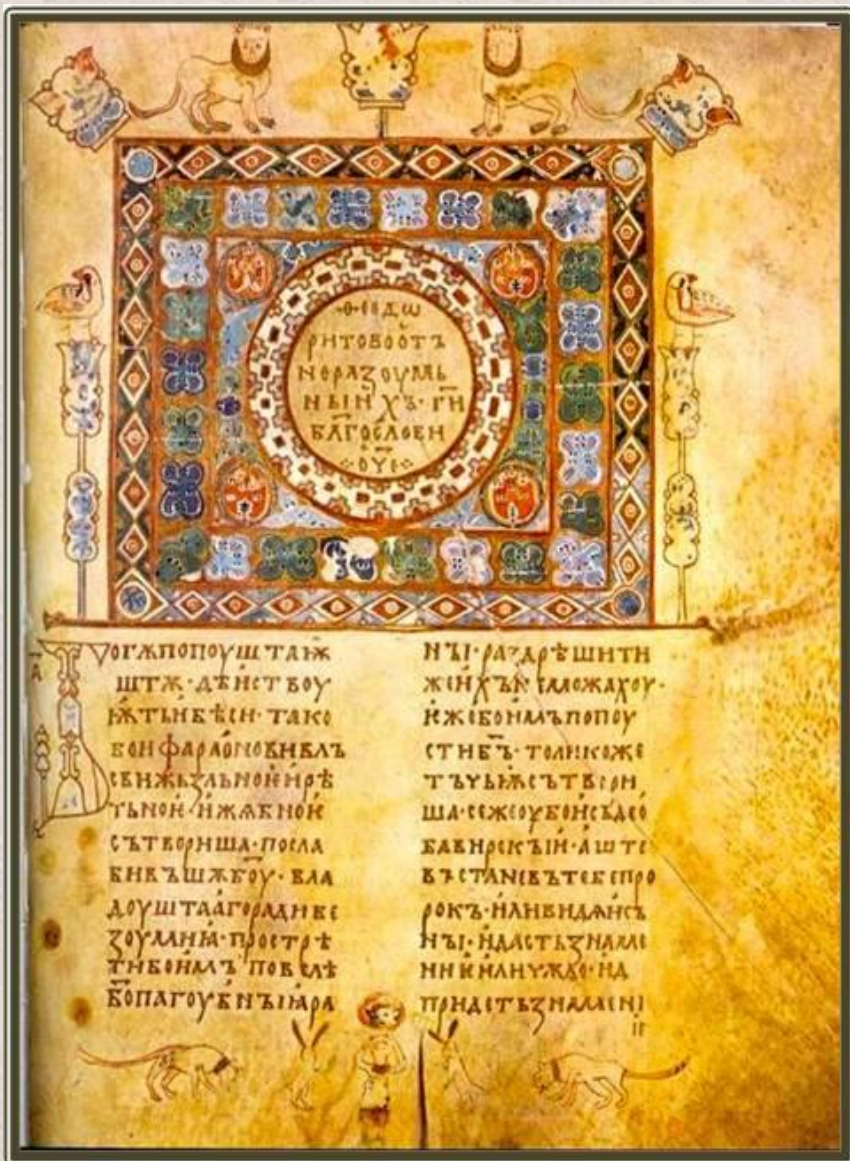 Ѳеодω
ритовоотъ
неразоумь
ныихъ·г҃и
бл҃агослови
о҃ч҃е
А҃
Богѫпопоушта
штѫ·дѣиствоу
ѭтьибѣси·тако
боифараоновивлъ
ꙿсвиж
тьнои·и
сътвориша·посла
бивъшѫб҃оу·вла
доуштааго·радибе
зоумиꙗ·прострѣ
тибоимъповелѣ
б҃опагоубныꙗра
ны·раздрѣшити
жеихънеможахоу·
ижебоимъпопоу
стиб҃ъ·толикоже
тъчьѭсътвори
ша·сежеоубоисъдео
бавирекыи·аште
въстаневътебепро
рокъ·иливидѧисъ
ны·идастьзнаме
ниеиличюдо·ид
придетьзнамени
ѥ